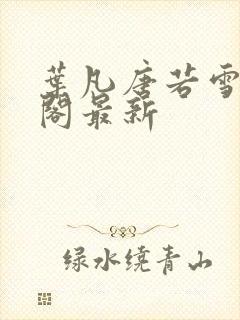 葉凡唐若雪
閣最新
绿水绕青山